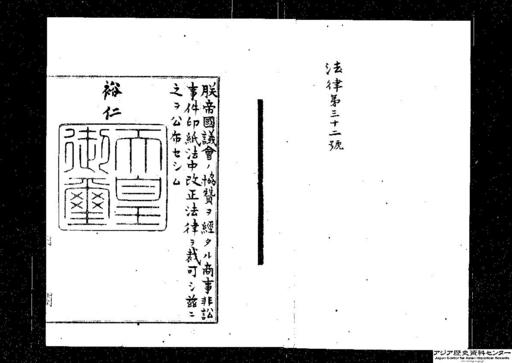 法律第三十二號
朕帝國議會ノ協賛ヲ經タル商事非訟
事件印紙法中改正法律ヲ裁可シ茲ニ
之ヲ公布セシム
裕仁
天皇
御璽
アジア歴史資料センター
Japan Center for Asian Historical Records